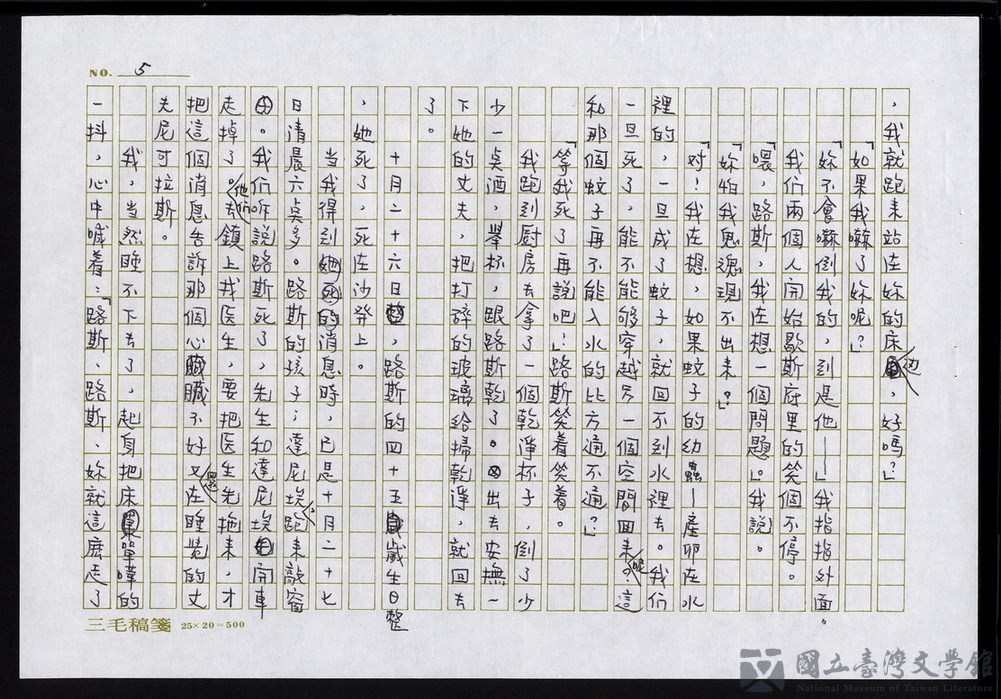 NO. 5
，我就跑来站在妳的床边，好嗎？」
「如果我嚇了妳呢？」
「妳不會嚇倒我的，到是他——」我指指外面。
我们兩個人開始歇斯底里的笑個不停。
「喂，路斯，我在想一個問題。」我說。
「妳怕我鬼魂現不出来？」
「对！我在想，如果蚊子的幼蟲—產卵在水
裡的，一旦成了蚊子，就回不到水裡去。我们
一旦死了，能不能夠穿越另一個空間回来呢？這
和那個蚊子再不能入水的比方通不通？」
「等我死了再說吧！」路斯笑着笑着。
我跑到厨房去拿了一個乾淨杯子，倒了少
少一点酒，舉杯，跟路斯乾了。出去安撫一
下她的丈夫，把打碎的玻璃给掃乾淨，就回去
了。
十月二十六日，路斯的四十五歲生日整
，她死了，死在沙發上。
当我得到的消息時，已是十月二十七
日清晨六点多。路斯的孩子；達尼埃跑来敲窗
。我们听說路斯死了，先生和達尼埃開車
走掉了。他们去鎮上找医生，要把医生先拖来，才
把這個消息告訴那個心臟不好又在睡覺的丈
夫尼可拉斯。
我，当然睡不下去了，起身把床單嘩的
一抖，心中喊着：「路斯、路斯、妳就這麽走了
三毛稿箋 25×20=500
國立臺灣文學館
National Museum of Taiwan Literature